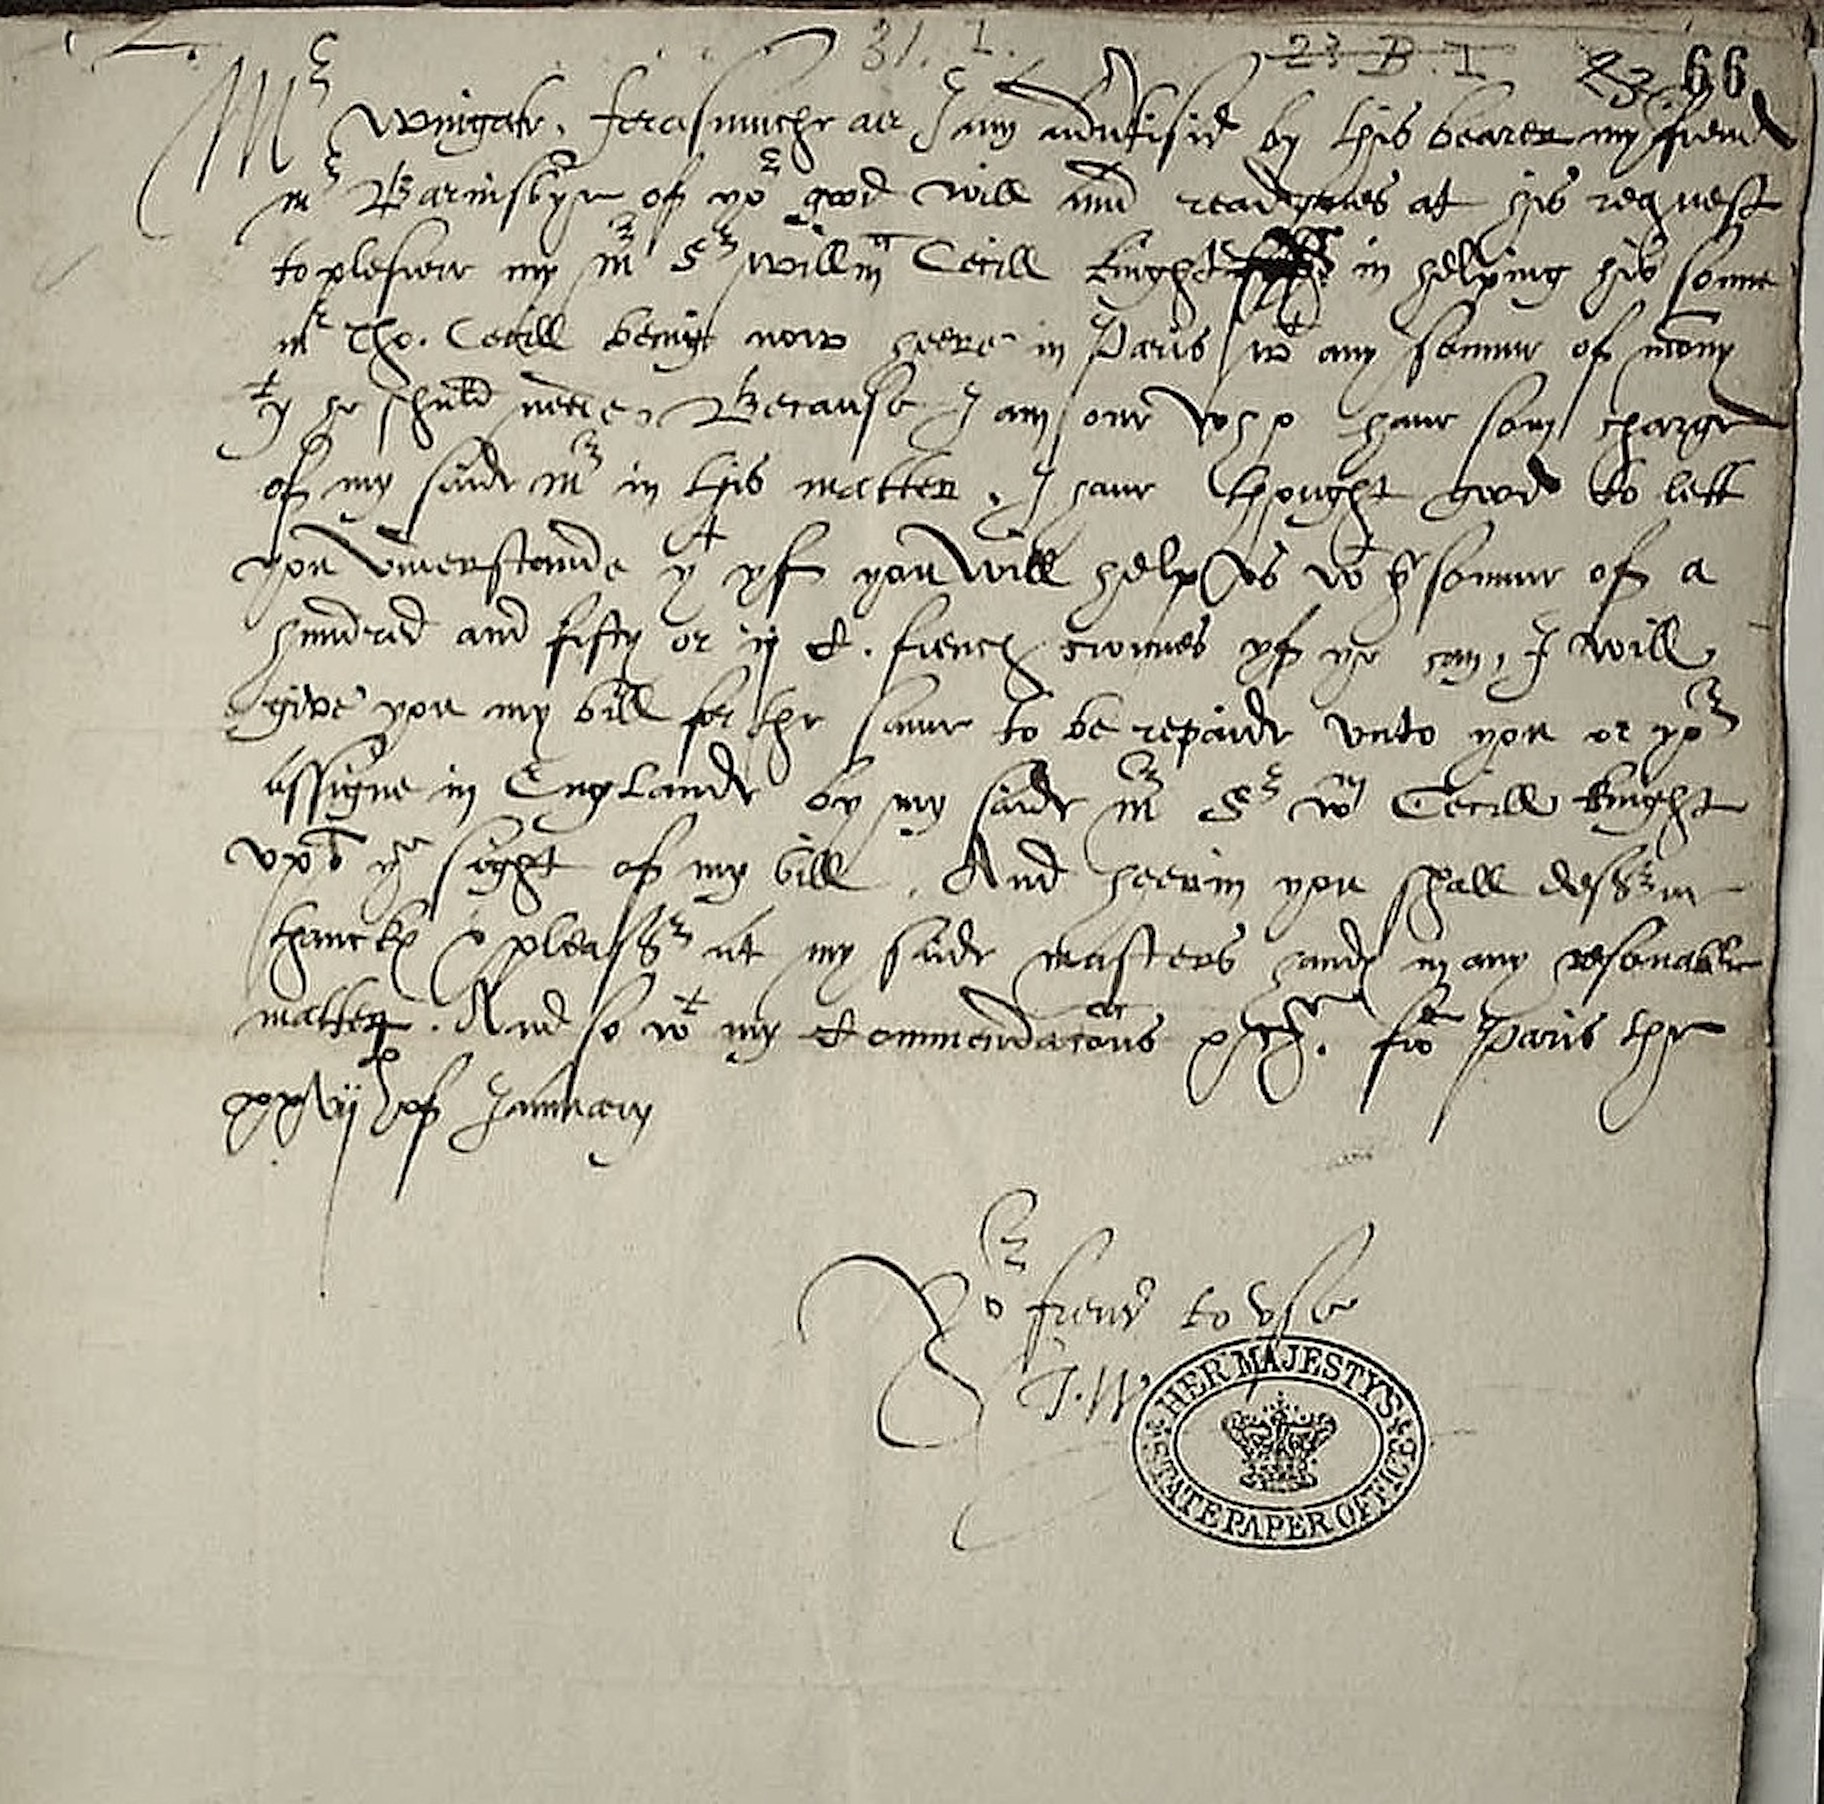 31. 1. 23 B. I 23. 66
Mr Wingate. forasmuche as I am advertisid by this bearer my frend
mr Barnsbye of yor good will and readynes at his request
to plesure my mr Sr Willm Cecill knight in helping his sonne
mr Tho. Cecill being now heere in Paris wt any somme of mony
yt he shuld neede, Because I am one who have som charge
of my saide mr in this matter, I have thought good to lett
you understande yt yf you will help us wt ye somme of a
hundred and fifty or ij C. french crownes yf ye can, I will
give you my bill for the same to be repaide unto you or yor
assigne in Englande by my saide mr Sr Wm Cecill knight
upō ye sight of my bill. And heerin you shall deserve
thanckes & pleasr at my saide masters handes in any resonable
matter. And so wt my Commendacōns &c. frō Paris the
xxvij th of January
Yor frend to use
T. W
HER MAJESTY'S
STATE PAPER OFFICE